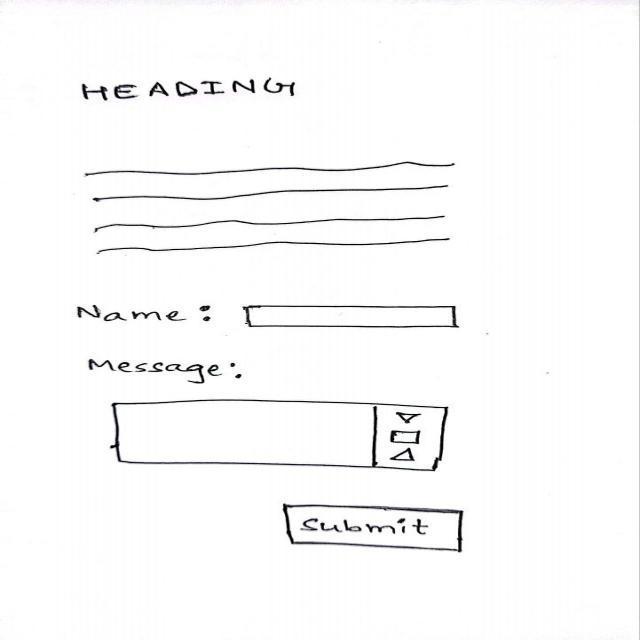 HEADING
Name:
Message:
Submit